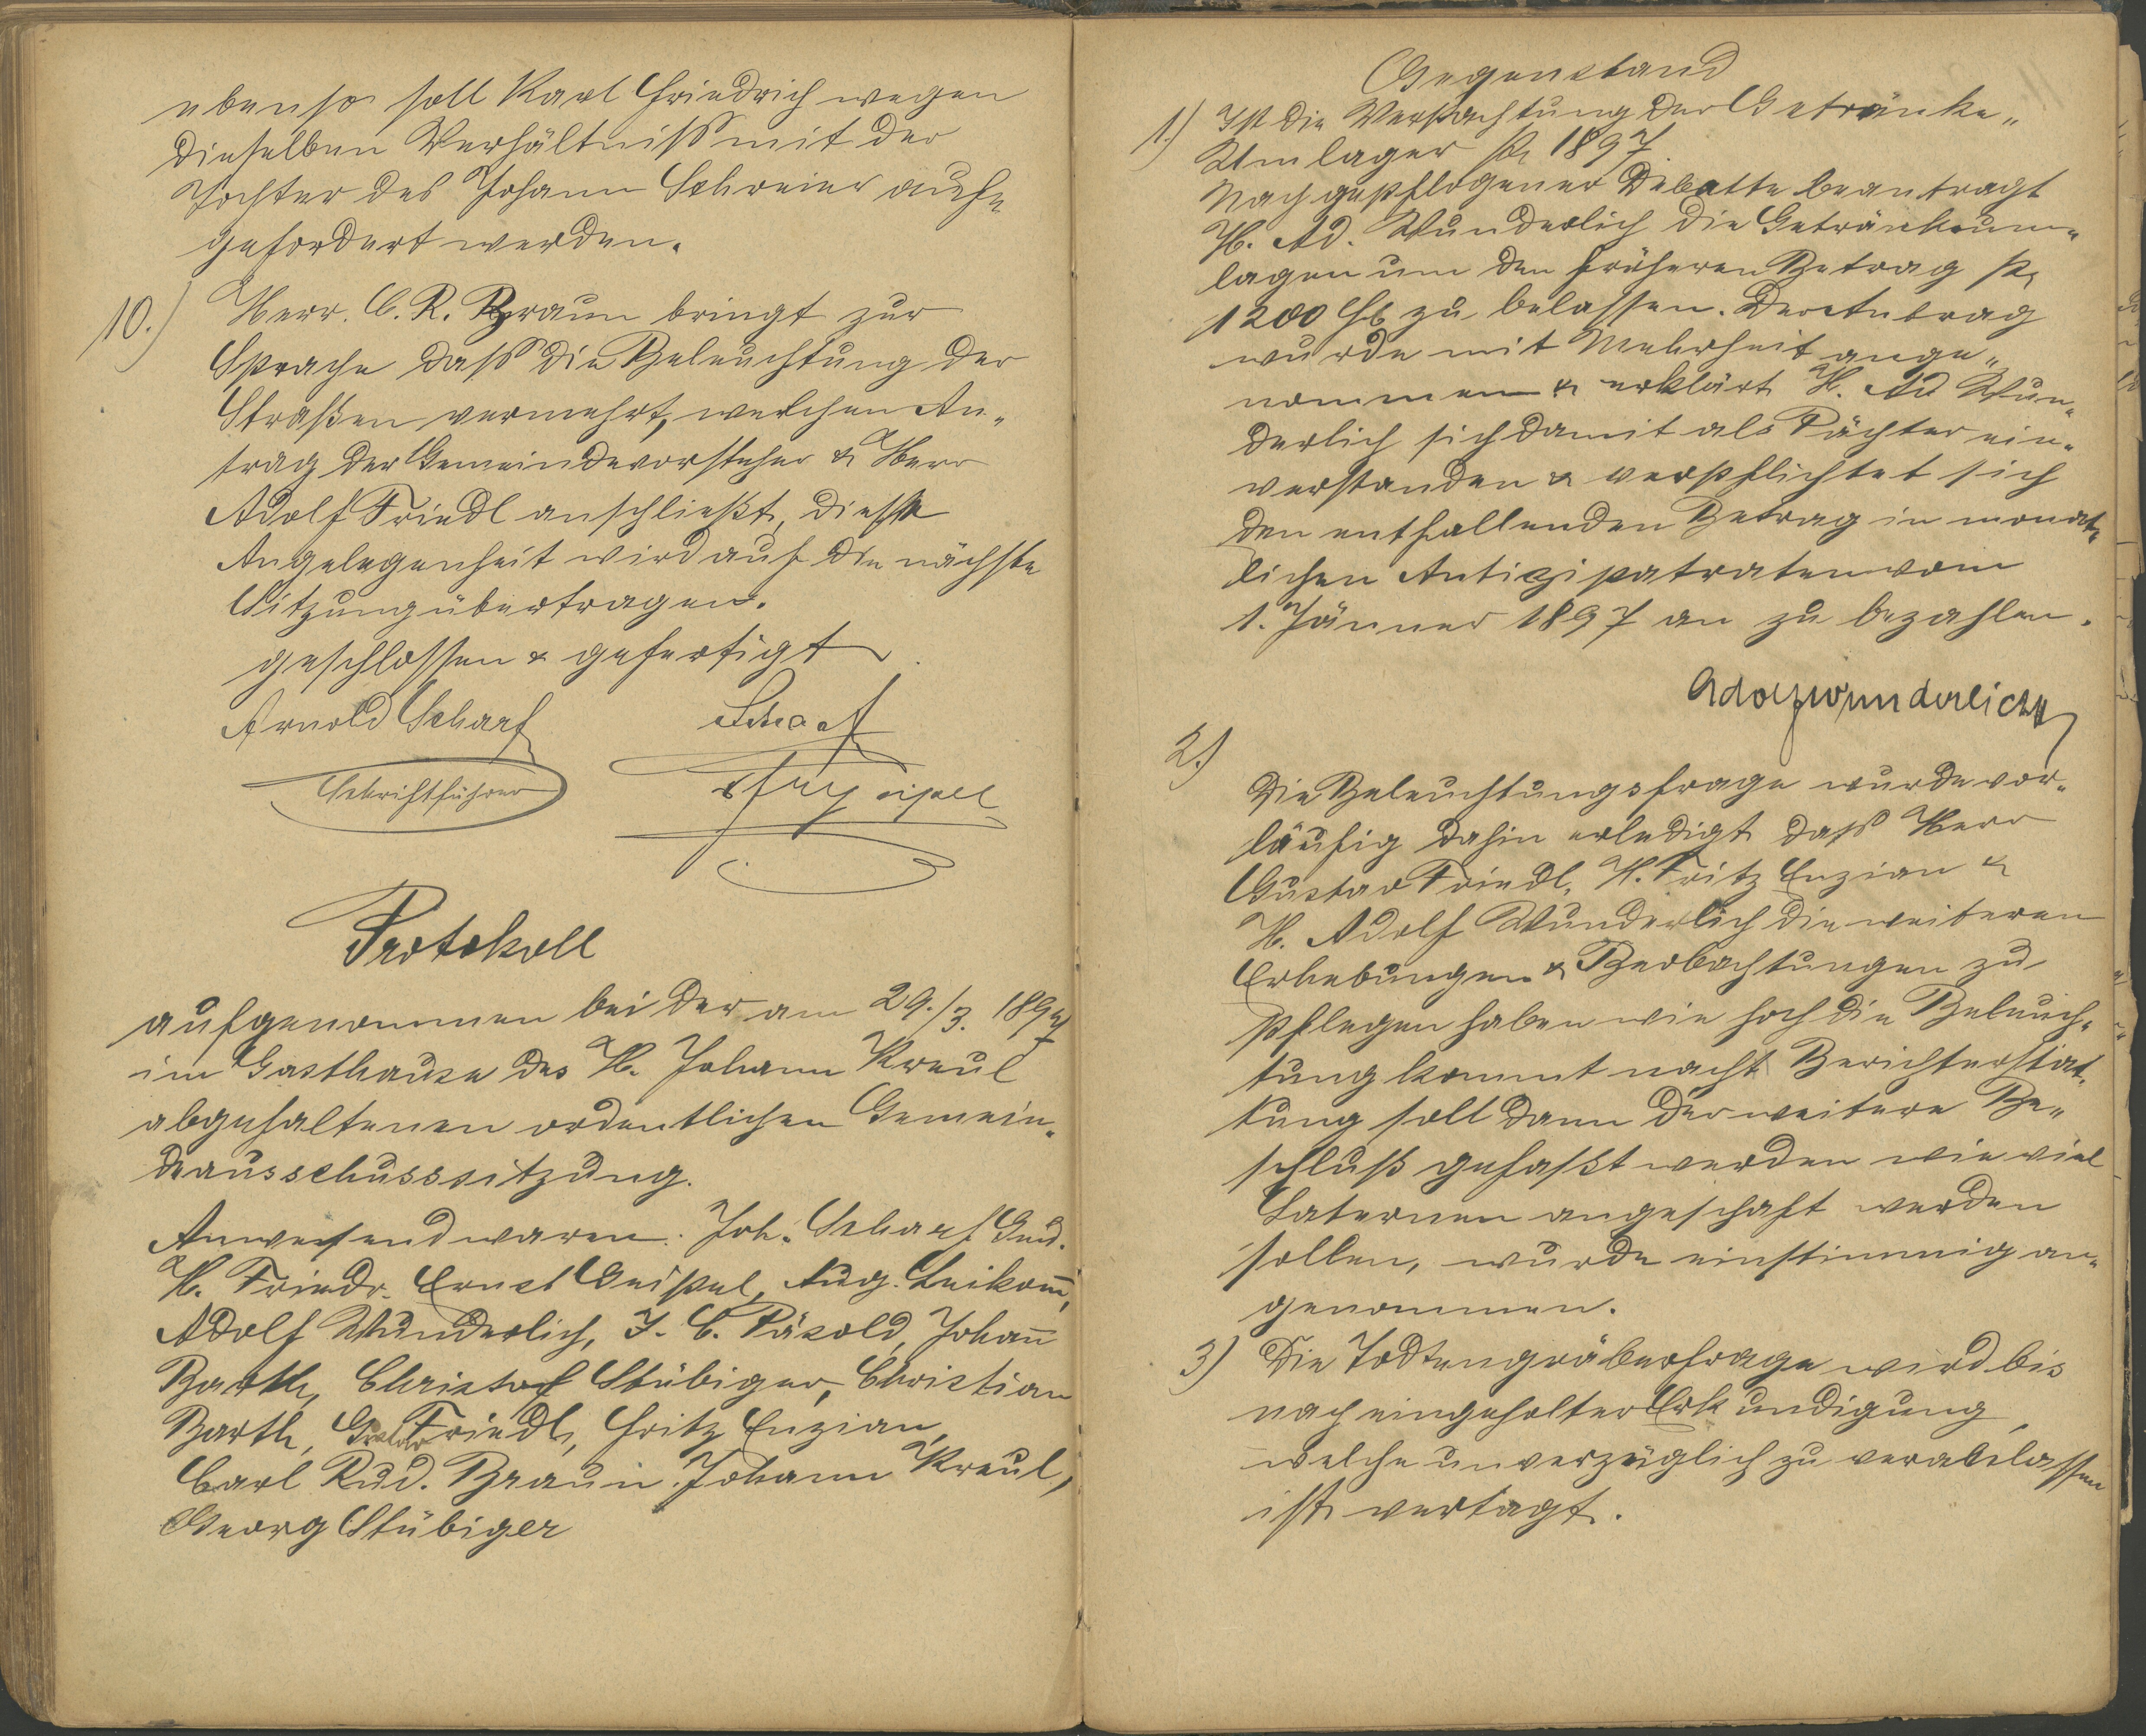 ebenso soll Karl Friedrich wegen
dieselben Verhältniß mit der
Tochter des Johann Schreier auf„
gefordert werden.
10.) Herr C. R. Braun bringt zur
Sprache daß die Beleuchtung der
Straßen vermehrt, welchen An„
trag der Gemeindevorsteher & Herr
Adolf Friedl anschließt, diese
Angelegenheit wird auf die nächste
Sitzung übertragen.
geschlossen & gefertigt
Arnold Scharf Scharf
Schriftführer
Protokoll
aufgenommen bei der am 29./3. 1897
im Gasthause des H. Johann Kreul
abgehaltenen ordentlichen Gemein„
deausschusssitzung.
Anwesend waren: Joh. Scharf
H. Friedr. Ernst Geipel, Aug. Leikam̄,
Adolf Wunderlich, J. C. Päsold, Johan̄
Barth, Christof Stübiger, Christian
Barth, Gustav Friedl, Fritz Enzian,
Carl Rud. Braun. Johann Kreul,
Georg Stübiger
Gegenstand
1.) Ist die Verpachtung der Getränke„
Umlagen pr 1897.
Nach gepflogener Debatte beantragt
H. Ad. Wunderlich die Getränkeum„
lagen um den früheren Betrag pr
1200 fl zu belassen. Der Antrag
wurde mit Mehrheit ange„
nommen & erklärt H. Ad Wun„
derlich sich damit als Pächter ein„
verstanden & verpflichtet sich
den entfallenden Betrag in monat„
lichen Antizipatraten vom
1. Jänner 1897 an zu bezahlen.
Adolf Wunderlich
2.)
Die Beleuchtungsfrage wurde vor„
läufig dahin erledigt daß Herr
Gustav Friedl, H. Fritz Enzian &
H. Adolf Wunderlich die weiteren
Erhebungen & Beobachtungen zu
pflegen haben wie hoch die Beleuch„
tung kommt nach Berichterstat„
tung soll dann der weitere Be„
schluß gefaßt werden wie viel
Laternen angeschaft werden
sollen, wurde einstimmig an„
genommen.
3) Die Todtengräberfrage wird bis
nach eingeholter Erkundigung,
welche unverzüglich zu veranlassen
ist vertagt.